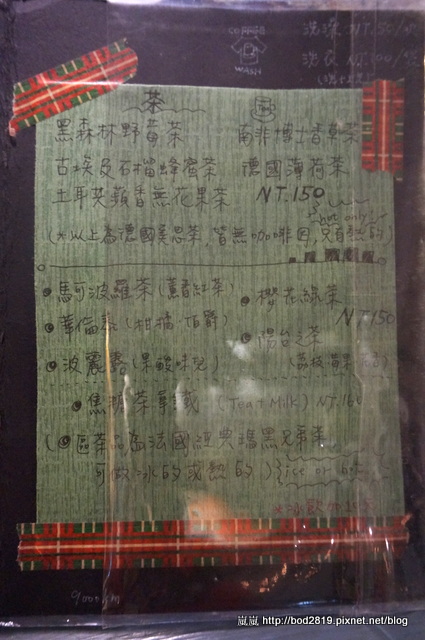 COFFEE
WASH
洗澡 NT.50/次
洗衣 NT.100/袋
茶
黑森林野莓茶
南非博士香草茶
古埃及石榴蜂蜜茶
德國薄荷茶
土耳其蘋香無花果茶
NT.150
not only
(*以上為德國美思茶，皆無咖啡因，只有熱的)
馬可波羅茶(薰香紅茶)
櫻花綠茶
NT150
華倫泰(柑橘 伯爵)
陽台之茶
波麗露(果酸味兒)
焦糖茶拿鐵 (Tea+Milk) NT.160
(◎區茶品為法國經典瑪黑兄弟茶
可做冰的或熱的) ice or hot
嵐嵐 http://bod2819.pixnet.net/blog